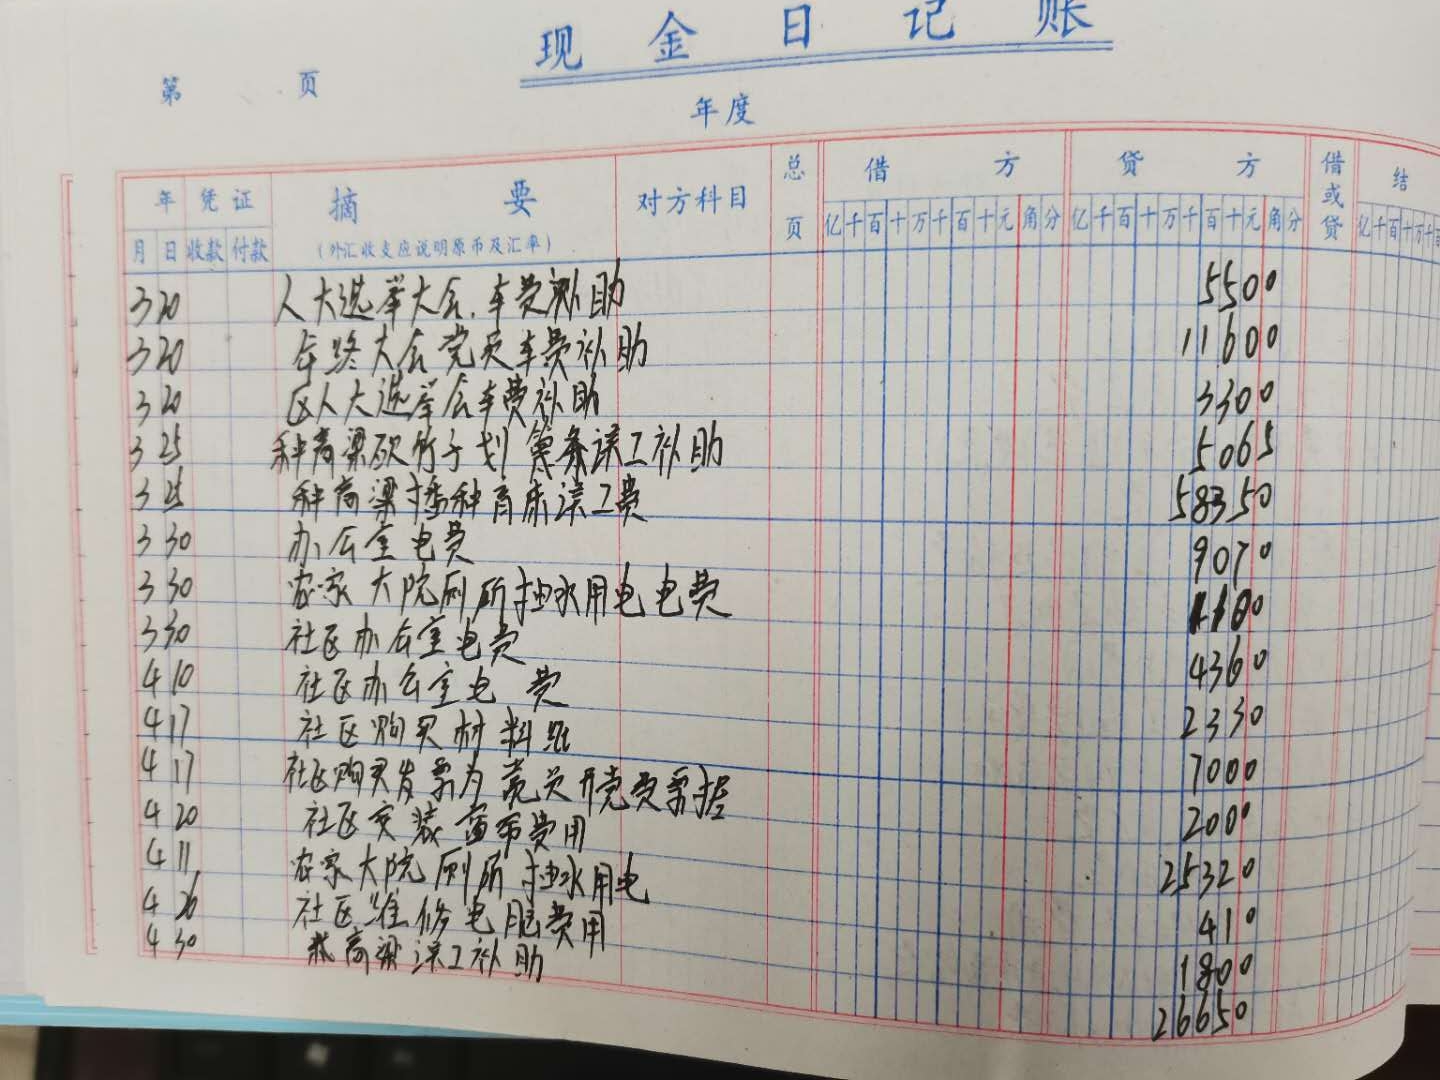 现金日记账
第 页
年度
年 凭证 摘要 对方科目 总页 借方 贷方 借或贷 结
月 日 收款 付款 (外汇收支应说明原币及汇率) 亿千百十万千百十元角分 亿千百十万千百十元角分 亿千百十万千百
3 20 人大选举大会.车费补助 5500
3 20 年终大会党员车费补助 11600
3 20 区人大选举会车费补助 3300
3 25 种高粱砍竹子划篾条误工补助 5065
3 25 种高粱播种育床误工费 58350
3 30 办公室电费 9070
3 30 农家大院厕所抽水用电电费 1100
3 30 社区办公室电费 4360
4 10 社区办公室电费 2330
4 17 社区购买材料纸 7000
4 17 社区购买发票为党员开党费票据 2000
4 20 社区安装窗布费用 25320
4 11 农家大院厕所抽水用电 410
4 26 社区维修电脑费用 1800
4 30 栽高粱误工补助 26650